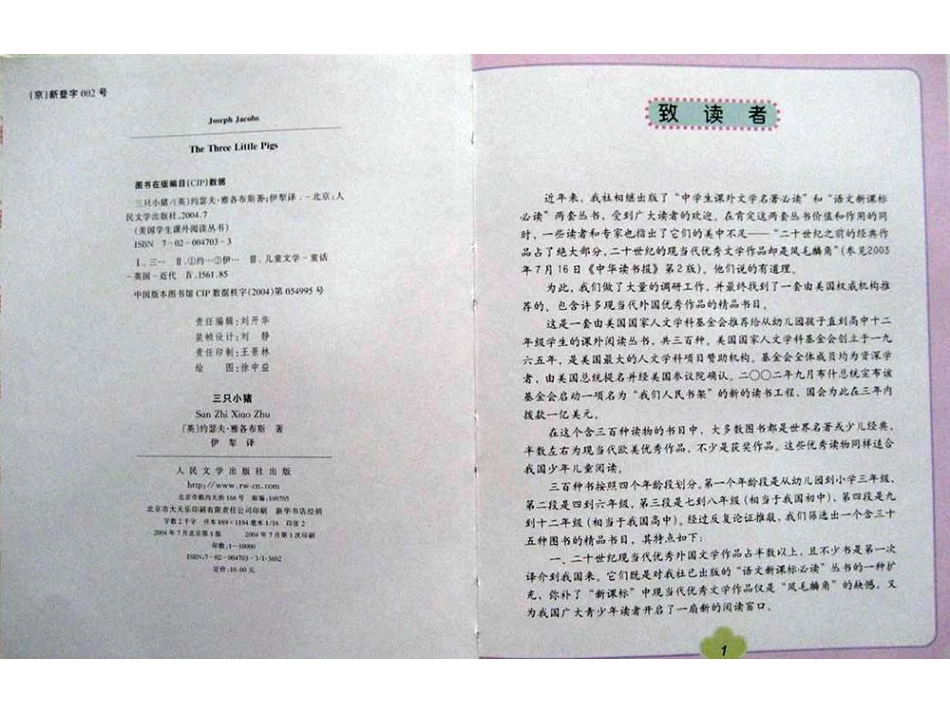 (京)新登字 002 号
Joseph Jacobs
The Three Little Pigs
图书在版编目(CIP)数据
三只小猪/(英)约瑟夫·雅各布斯著;伊犁译.-北京:人
民文学出版社,2004.7
(美国学生课外阅读丛书)
ISBN 7-02-004703-3
Ⅰ.三… Ⅱ.①约…②伊… Ⅲ.儿童文学-童话
-英国-近代 Ⅳ.I561.85
中国版本图书馆 CIP 数据核字(2004)第 054995 号
责任编辑:刘开华
装帧设计:刘 静
责任印制:王景林
绘 图:徐中益
三只小猪
San Zhi Xiao Zhu
(英)约瑟夫·雅各布斯 著
伊 犁 译
人民文学出版社出版
http://www.rw-cn.com
北京市朝内大街 166 号 邮编:100705
北京市大天乐印刷有限责任公司印刷 新华书店经销
字数 2 千字 开本 889×1194 毫米 1/16 印张 2
2004 年 7 月北京第 1 版 2004 年 7 月第 1 次印刷
印数:1-10000
ISBN 7-02-004703-3/I·3602
定价:10.00 元
致 读 者
近年来,我社相继出版了“中学生课外文学名著必读”和“语文新课标
必读”两套丛书,受到广大读者的欢迎。在肯定这两套丛书价值和作用的同
时,一些读者和专家也指出了它们的美中不足——“二十世纪之前的经典作
品占了绝大部分,二十世纪的现当代优秀文学作品却是凤毛麟角”(参见2003
年7月16日《中华读书报》第2版)。他们说的有道理。
为此,我们做了大量的调研工作,并最终找到了一套由美国权威机构推
荐的、包含许多现当代外国优秀作品的精品书目。
这是一套由美国国家人文学科基金会推荐给从幼儿园孩子直到高中十二
年级学生的课外阅读丛书,共三百种。美国国家人文学科基金会创立于一九
六五年,是美国最大的人文学科项目赞助机构。基金会全体成员均为资深学
者,由美国总统提名并经美国参议院确认。二〇〇二年九月布什总统宣布该
基金会启动一项名为“我们人民书架”的新的读书工程,国会为此在三年内
拨款一亿美元。
在这个含三百种读物的书目中,大多数图书都是世界名著或少儿经典,
半数左右为现当代欧美优秀作品,不少是获奖作品。这些优秀读物同样适合
我国少年儿童阅读。
三百种书按照四个年龄段划分。第一个年龄段是从幼儿园到小学三年级,
第二段是四到六年级,第三段是七到八年级(相当于我国初中),第四段是九
到十二年级(相当于我国高中)。经过反复论证推敲,我们筛选出一个含三十
五种图书的精品书目,其特点如下:
一、二十世纪现当代优秀外国文学作品占半数以上,且不少书是第一次
译介到我国来。它们既是对我社已出版的“语文新课标必读”丛书的一种扩
充,弥补了“新课标”中现当代优秀文学作品仅是“凤毛麟角”的缺憾。又
为我国广大青少年读者开启了一扇新的阅读窗口。
1